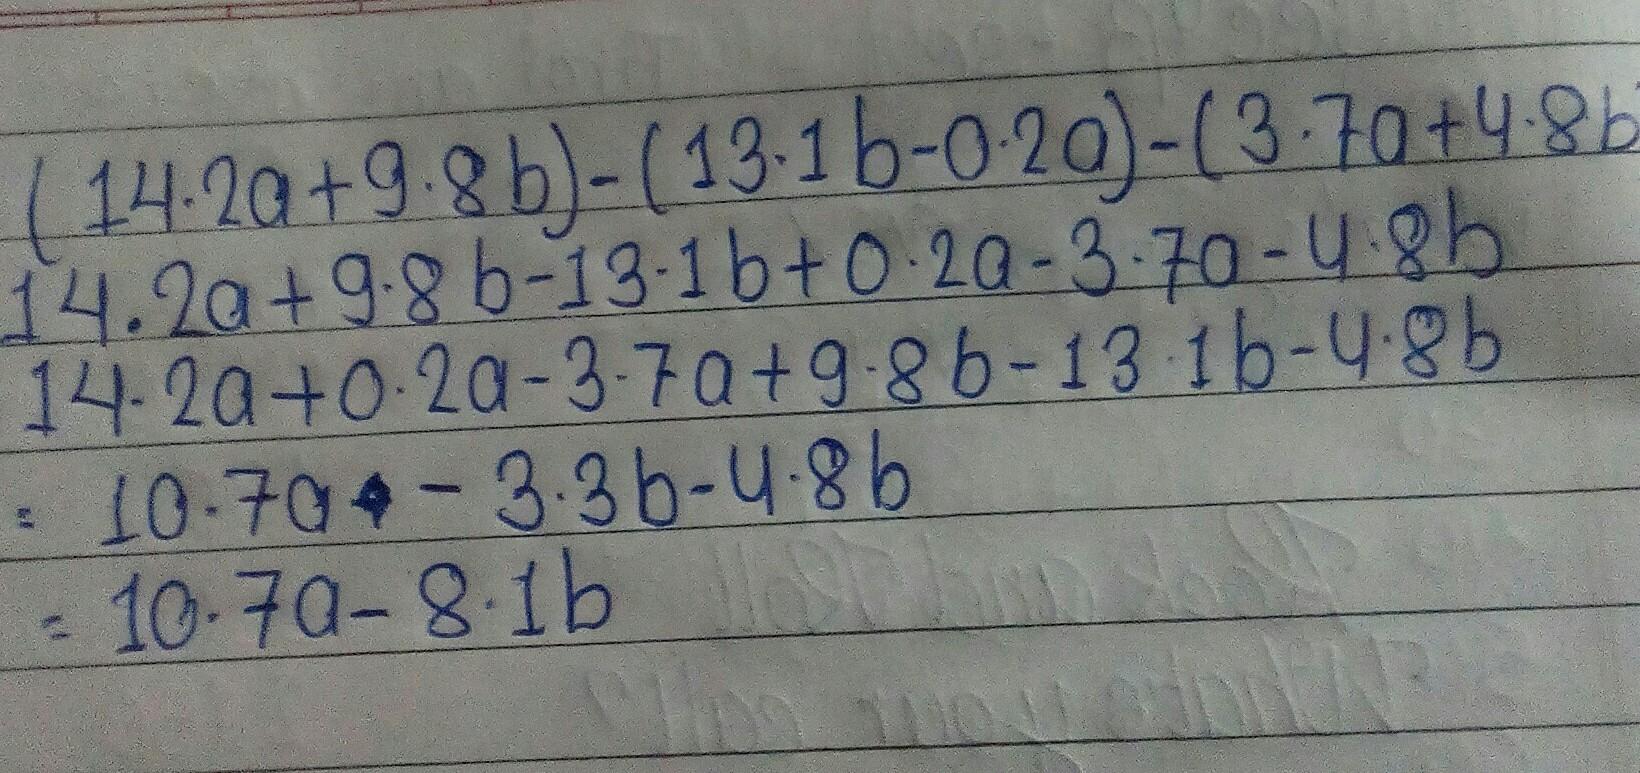 (14.2a+9.8b)-(13.1b-0.2a)-(3.7a+4.8b
14.2a+9.8b-13.1b+0.2a-3.7a-4.8b
14.2a+0.2a-3.7a+9.8b-13.1b-4.8b
= 10.7a - 3.3b-4.8b
= 10.7a-8.1b